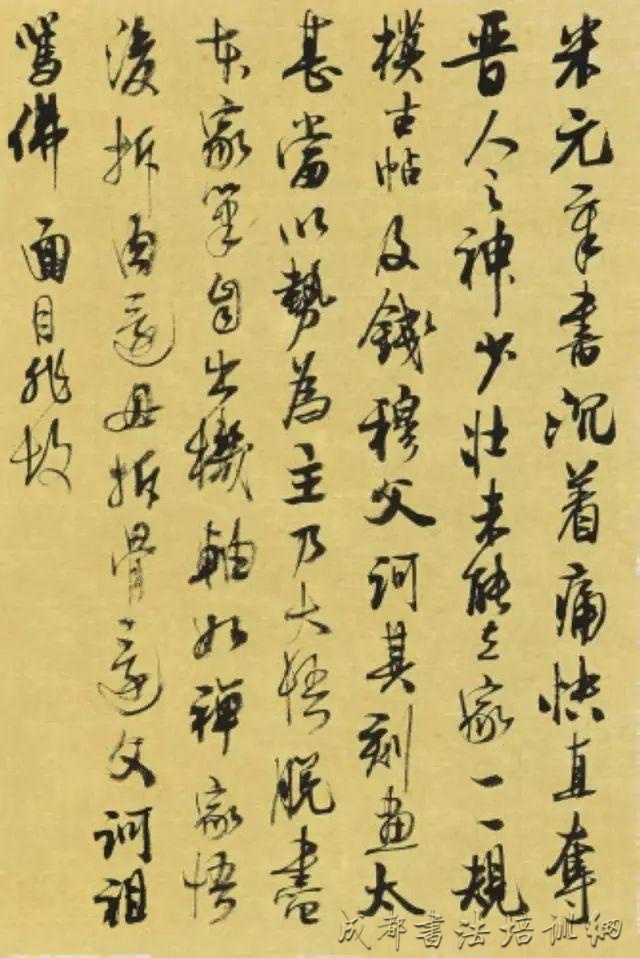 米元章書沉着痛快直奪
晉人之神少壯未能立家一一規
模古帖及錢穆父訶其刻畫太
甚當以勢為主乃大悟脫盡
本家筆自出機軸如禪家悟
後拆肉還母拆骨還父訶祖
罵佛面目非故
成都書法培訓網